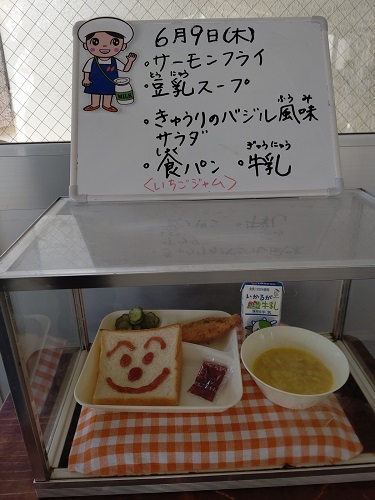 6月9日(木)
・サーモンフライ
とう にゅう
・豆乳スープ
ふう み
・きゅうりのバジル風味
サラダ
しょく
・食パン
ぎゅうにゅう
・牛乳
〈いちごジャム〉
MILK
いかるが
牛乳